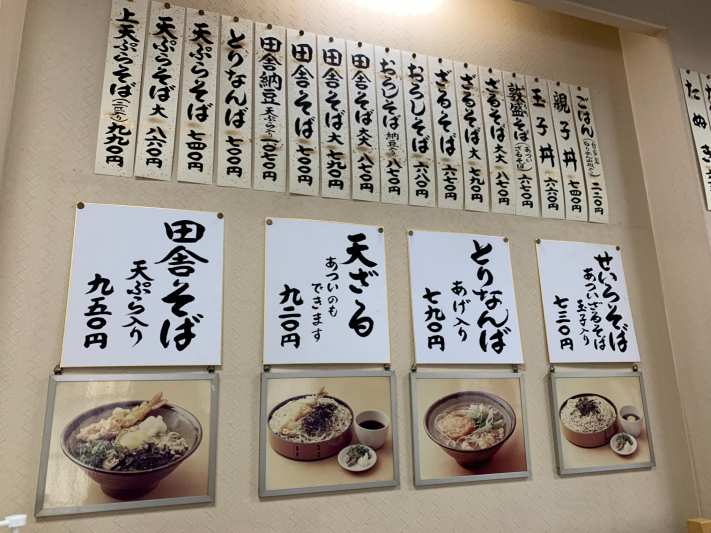 上天ぷらそば(二匹入り)九九〇円
天ぷらそば大八六〇円
天ぷらそば七四〇円
とりなんば七〇〇円
田舎納豆天ぷら入り一〇七〇円
田舎そば七〇〇円
田舎そば大七九〇円
田舎そば大大八七〇円
おろしそば納豆入り八七〇円
おろしそば六八〇円
ざるそば六七〇円
ざるそば大七九〇円
ざるそば大大八八〇円
敦盛そば(あつい ざるそば)六七〇円
玉子丼六六〇円
親子丼七四〇円
ごはん
二二〇円
たぬき
田舎そば
天ぷら入り
九五〇円
天ざる
あついのも
できます
九二〇円
とりなんば
あげ入り
七九〇円
せいろそば
あついざるそば
玉子入り
七三〇円